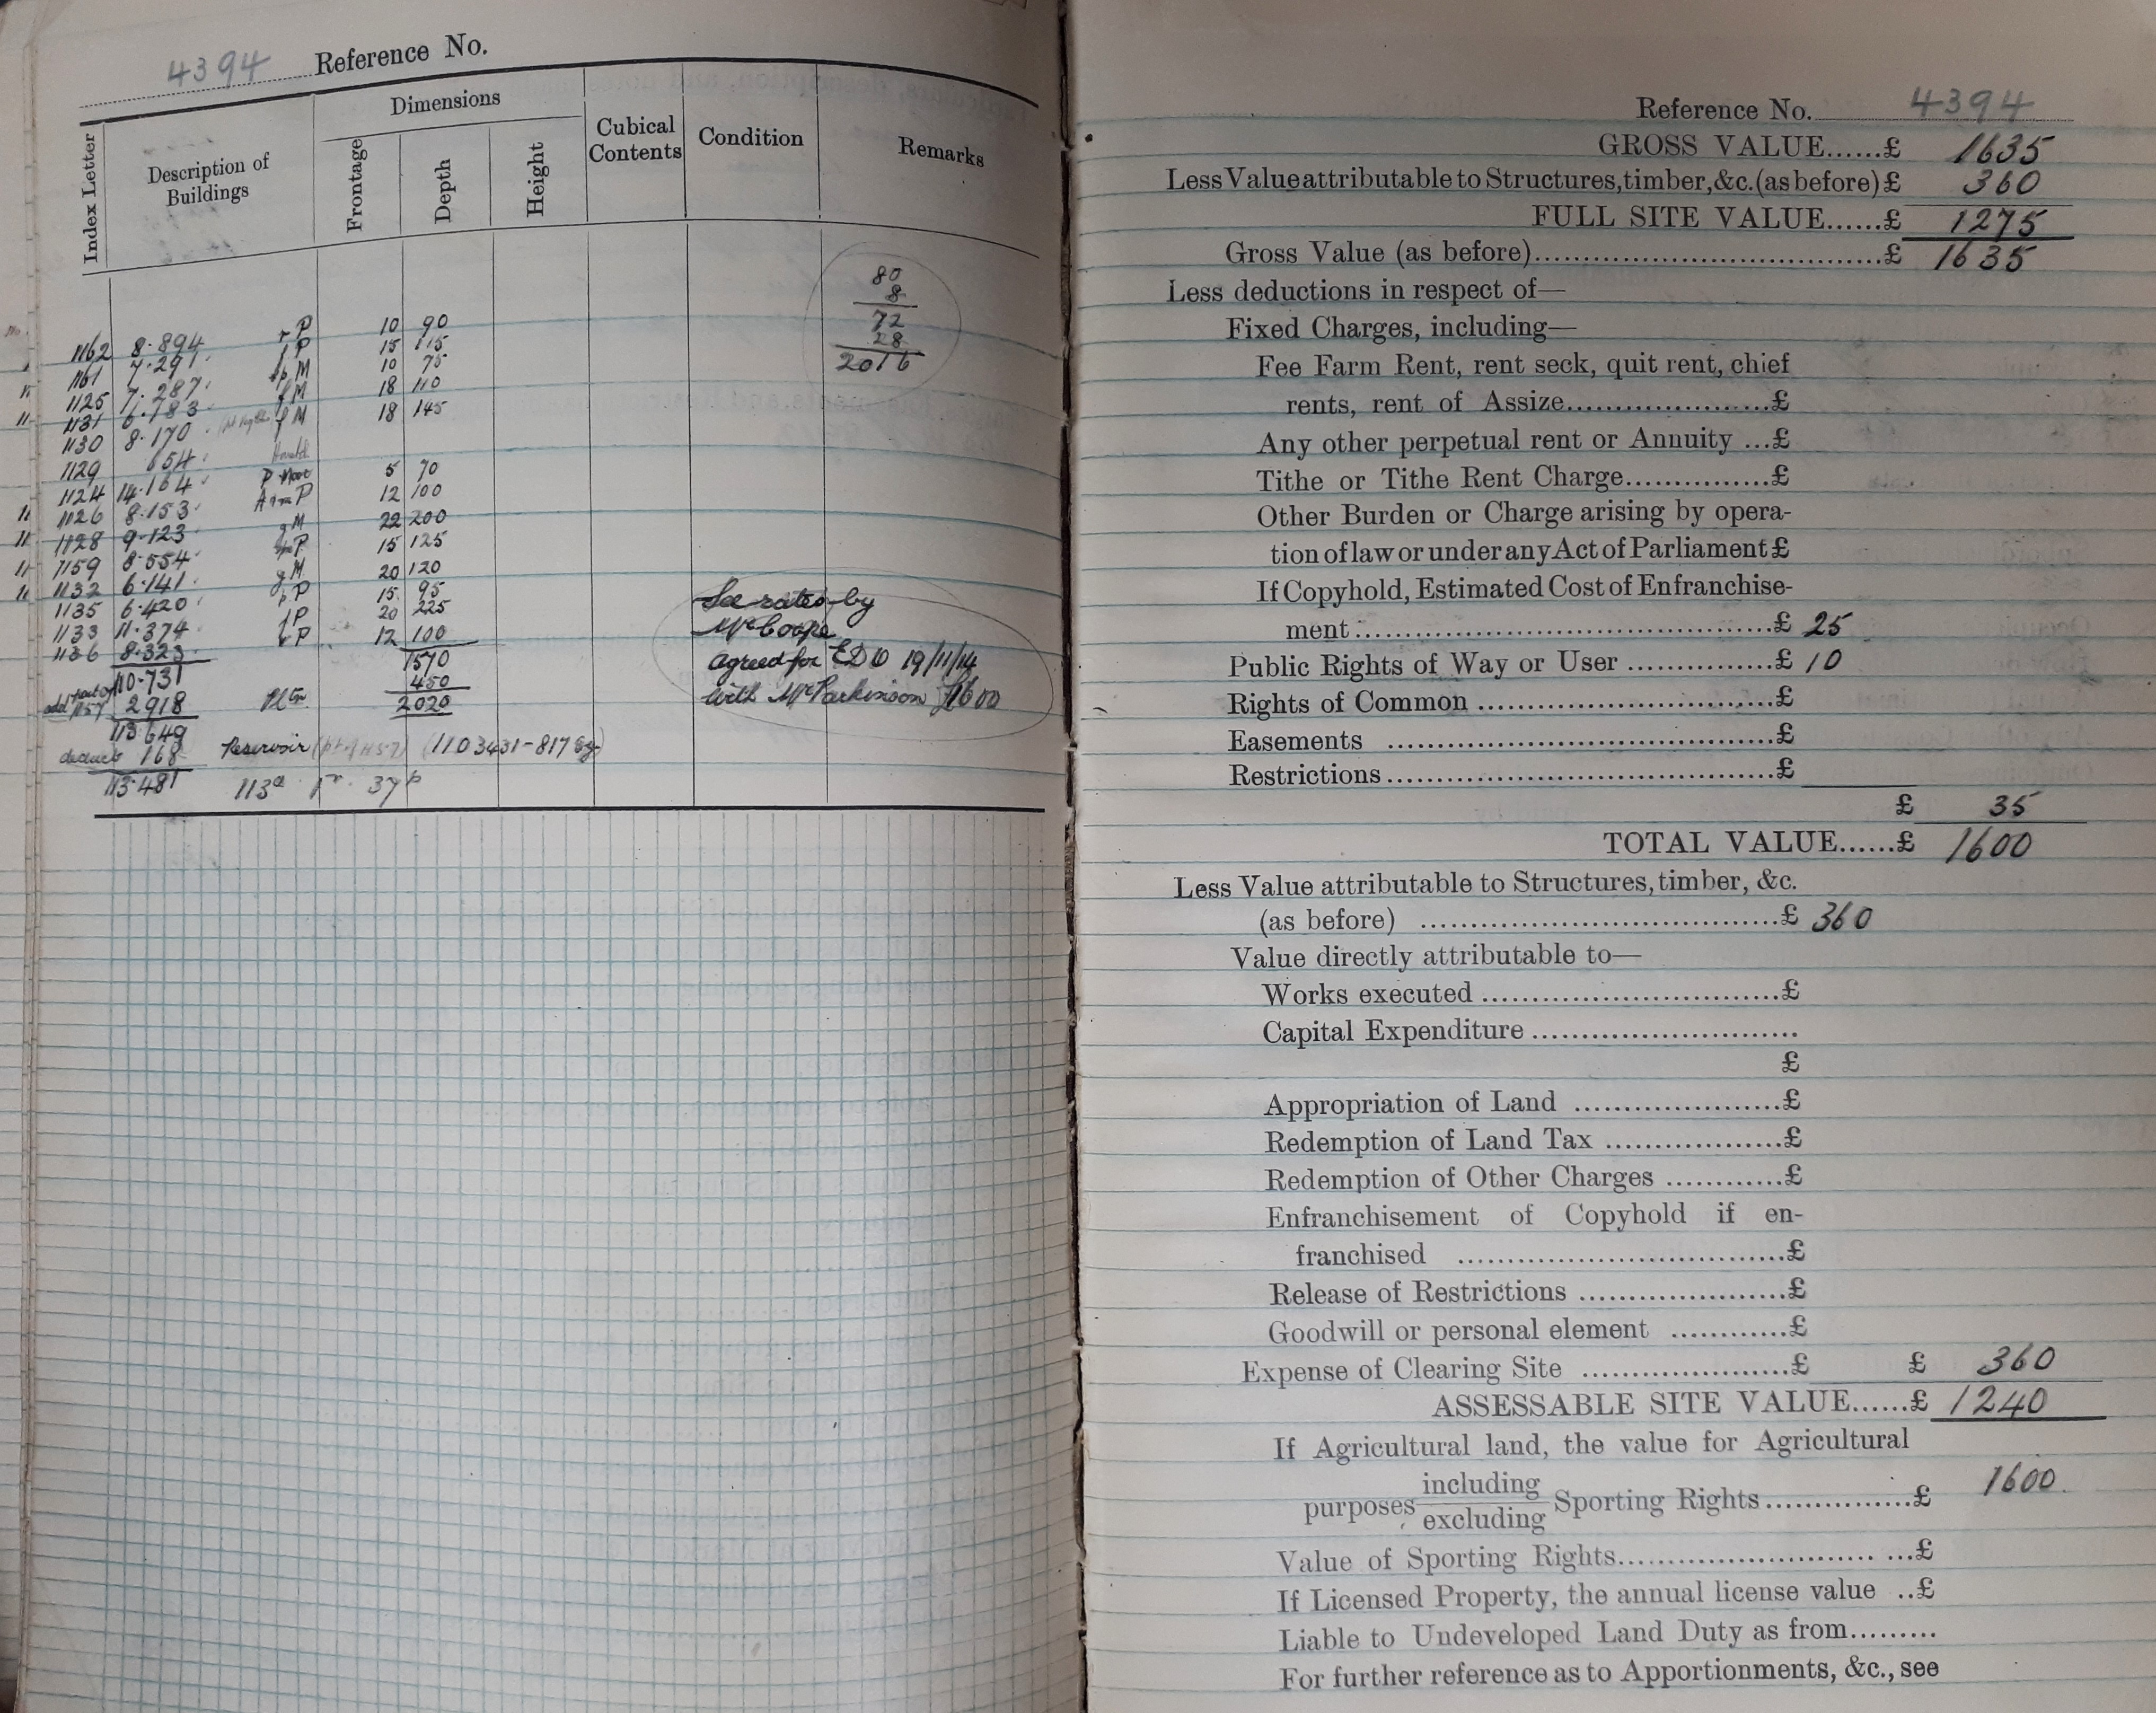 4394 Reference No.
Index Letter
Description of Buildings
Dimensions
Frontage
Depth
Height
Cubical Contents
Condition
Remarks
80
8
72
28
2016
1162 8.894 P 10 90
1161 7.291 P 15 115
1125 7.287 M 10 75
1131 6.783 M 18 110
1130 8.170 M 18 145
1129 .654
1124 14.164 P Moor 5 70
1126 8.153 P 12 100
1128 9.123 M 22 200
1159 8.554 P 15 125
1132 6.141 M 20 120
1135 6.420 P 15 95
1133 11.374 P 20 225
1136 8.323 P 12 100
110.731 1570
add part of 1157 2.918 Pltn 450
113.649 2020
deduct 168 Reservoir (pt of 1157) (1103431-817 Sy)
113.481 113a 1r. 37p
See rates by
Mr Coope
agreed for EDO 19/11/14
with Mr Parkinson £1600
Reference No. 4394
GROSS VALUE......£ 1635
Less Value attributable to Structures, timber, &c. (as before) £ 360
FULL SITE VALUE......£ 1275
Gross Value (as before)......£ 1635
Less deductions in respect of—
Fixed Charges, including—
Fee Farm Rent, rent seck, quit rent, chief
rents, rent of Assize......£
Any other perpetual rent or Annuity ...£
Tithe or Tithe Rent Charge......£
Other Burden or Charge arising by opera-
tion of law or under any Act of Parliament £
If Copyhold, Estimated Cost of Enfranchise-
ment......£ 25
Public Rights of Way or User......£ 10
Rights of Common......£
Easements......£
Restrictions......£
£ 35
TOTAL VALUE......£ 1600
Less Value attributable to Structures, timber, &c.
(as before)......£ 360
Value directly attributable to—
Works executed......£
Capital Expenditure......
£
Appropriation of Land......£
Redemption of Land Tax......£
Redemption of Other Charges......£
Enfranchisement of Copyhold if en-
franchised......£
Release of Restrictions......£
Goodwill or personal element......£
Expense of Clearing Site......£ £ 360
ASSESSABLE SITE VALUE......£ 1240
If Agricultural land, the value for Agricultural
purposes including / excluding Sporting Rights......£ 1600
Value of Sporting Rights......£
If Licensed Property, the annual license value ..£
Liable to Undeveloped Land Duty as from.........
For further reference as to Apportionments, &c., see